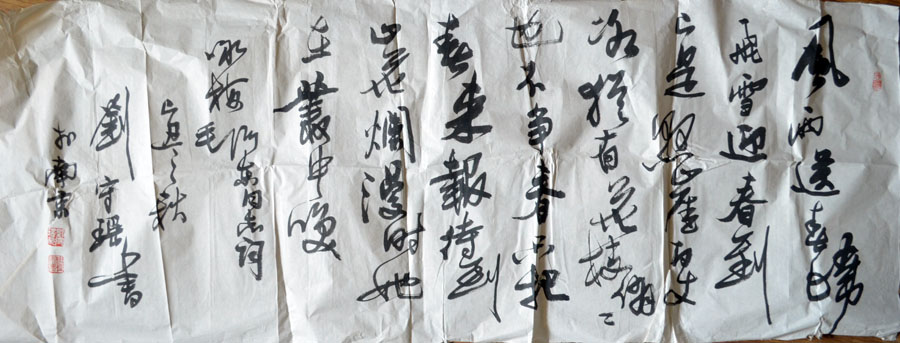 風雨送春歸
飛雪迎春到
已是懸崖百丈
冰猶有花枝俏〻
也不争春只把
春來報待到
山花爛漫時她
在叢中笑
咏梅
毛澤東同志詞
之秋
劉守瑶書
於南京